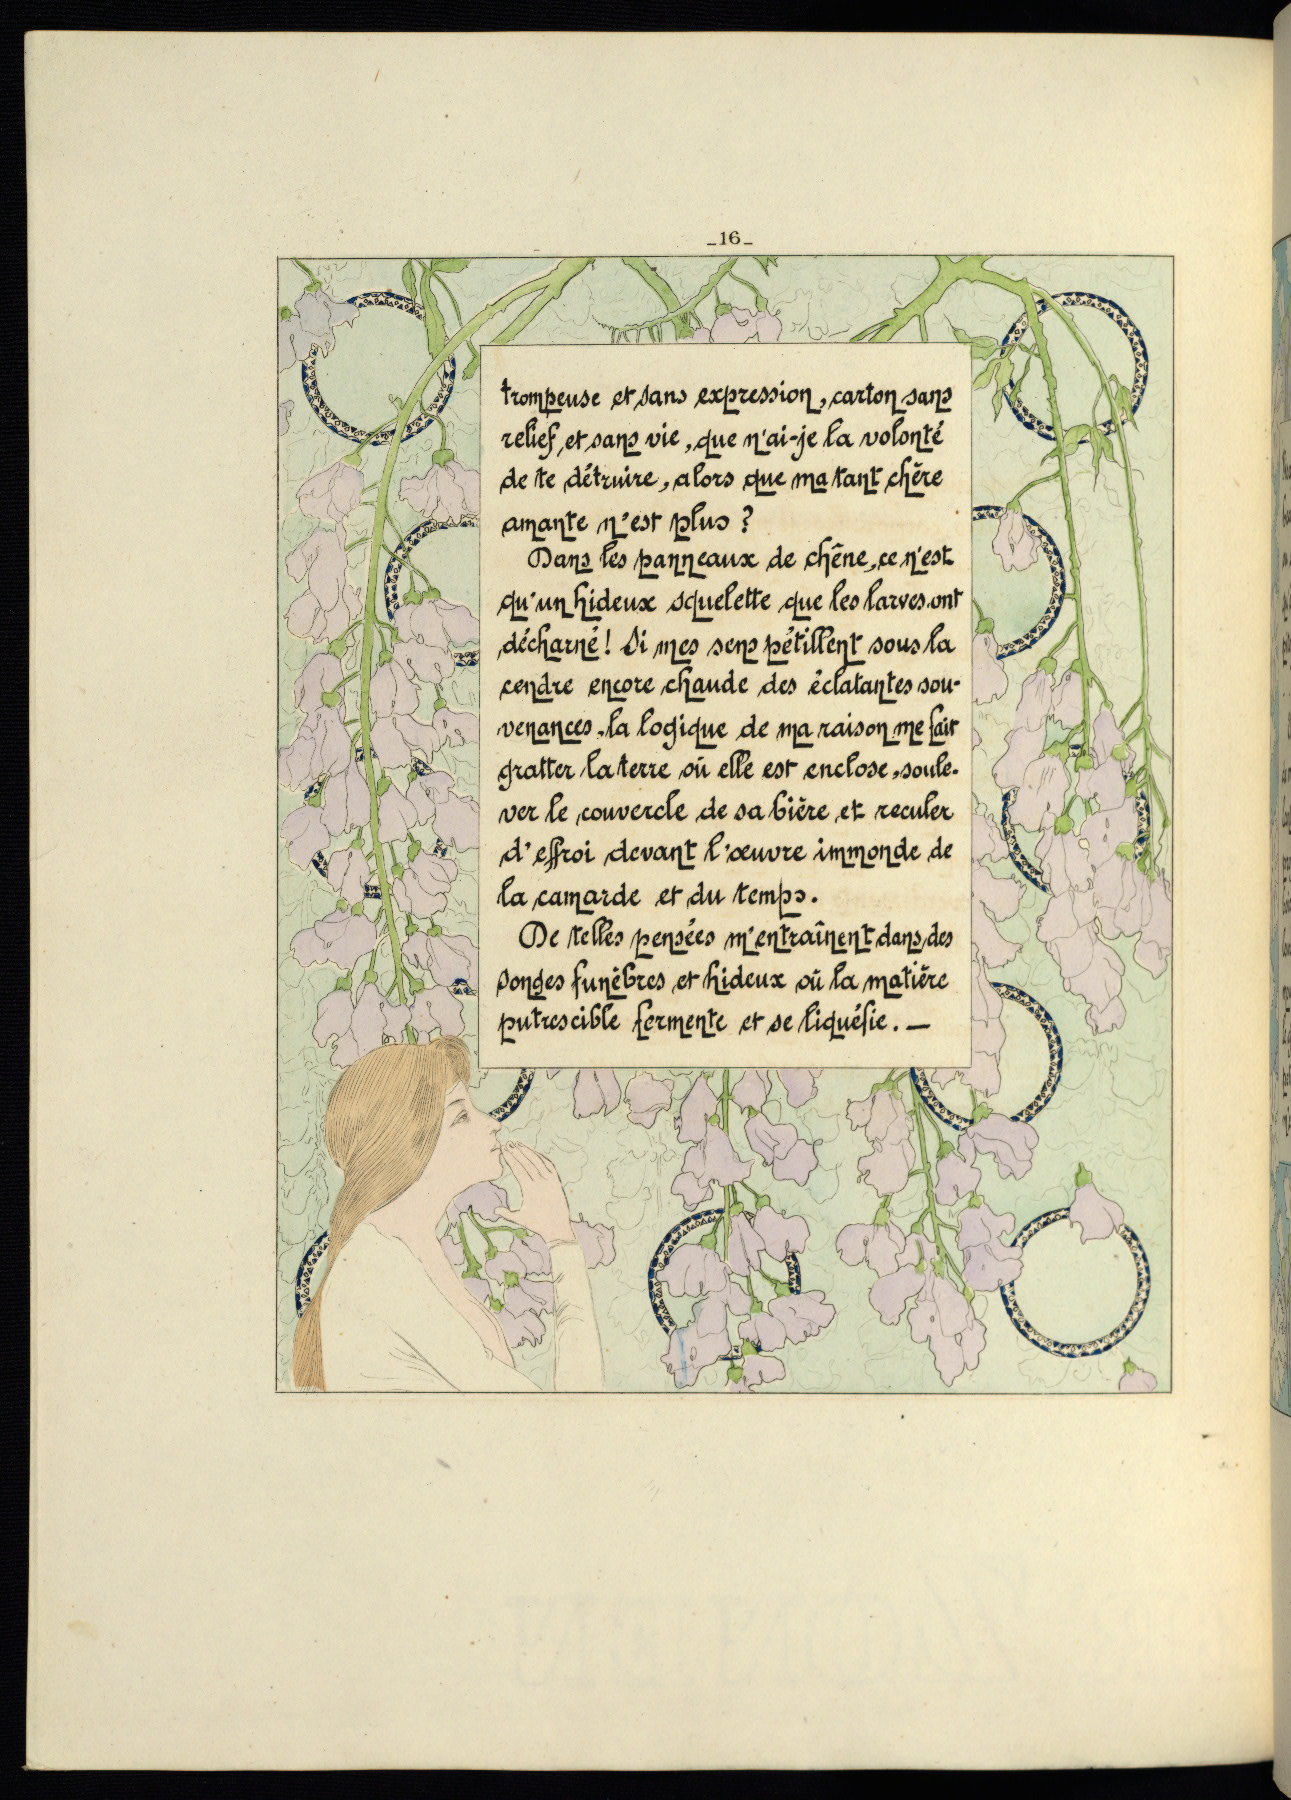 _16_
trompeuse et sans expression, carton sans
relief et sans vie, que n'ai-je la volonté
de te détruire, alors que ma tant chère
amante n'est plus ?
Dans les panneaux de chêne, ce n'est
qu'un hideux squelette que les larves ont
décharné ! Si mes sens pétillent sous la
cendre encore chaude des éclatantes sou-
venances, la logique de ma raison me fait
gratter la terre où elle est enclose, soule-
ver le couvercle de sa bière et reculer
d'effroi devant l'œuvre immonde de
la camarde et du temps.
De telles pensées m'entraînent dans des
songes funèbres et hideux où la matière
putrescible fermente et se liquéfie. —